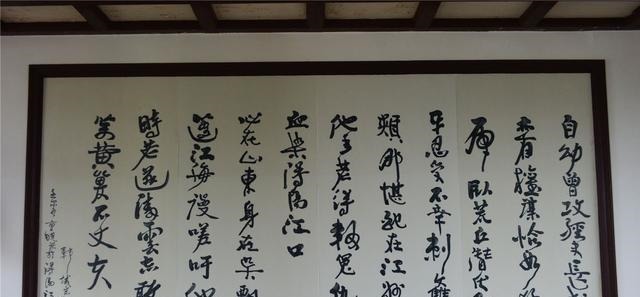 自幼曾攻經史長
亦有權謀恰如
虎臥荒丘潛伏
牙忍受不幸刺雙
頰那堪配在江州
他年若得報冤仇
血染潯陽江口
心在山東身在吳
蓬江海謾嗟吁他
時若遂凌雲志敢
笑黃巢不丈夫